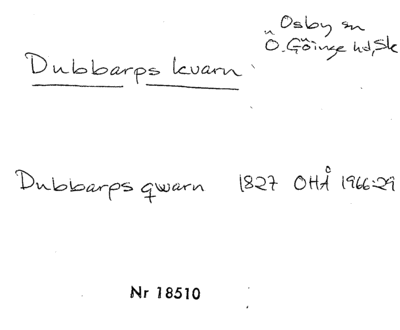 Osby sn
Ö. Göinge hd, Sk
Dubbarps kvarn
Dubbarps qwarn 1827 OHÅ 1966:29
Nr 18510